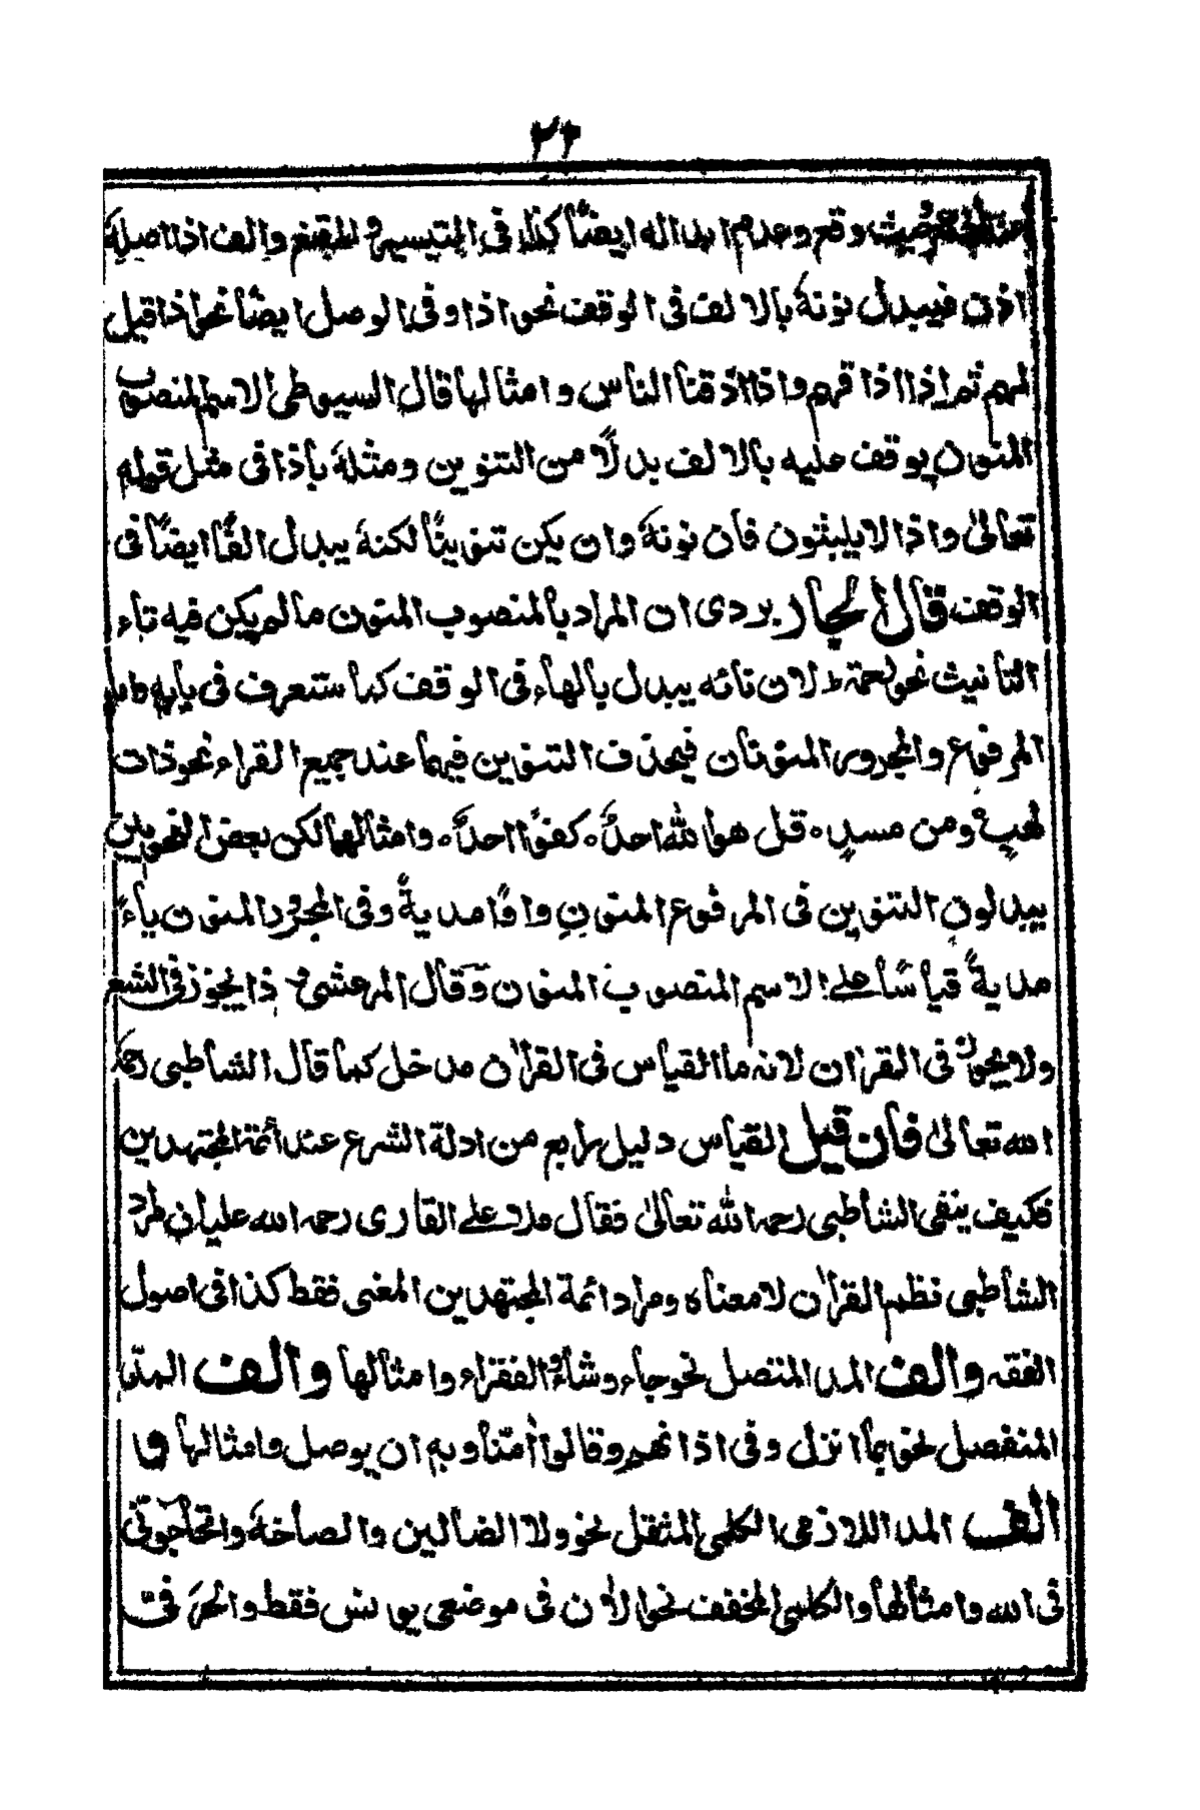 ٢٦
حيث وقع وعدم ابداله ايضًا كذا فى التيسير والمقنع والف اذا اصله
اذن فيبدل نونهٗ بالالف فى الوقف نحو اذا وفى الوصل ايضًا نحو اذا قيل
لهم ثم اذا اذاقهم واذا اذقنا الناس وامثالها قال السيوطى الاسم المنصوب
المنون يوقف عليه بالالف بدلًا من التنوين ومثلهٗ باذا فى مثل قوله
تعالىٰ واذا لا يلبثون فان نونهٗ وان يكن تنوينًا لكنهٗ يبدل الفًا ايضًا فى
الوقف قال الجاربردى ان المراد بالمنصوب المنون ما لم يكن فيه تاء
التانيث نحو رحمة لان تائه يبدل بالهاء فى الوقف كما ستعرف فى بابه واما
المرفوع والمجرور المنونان فيحذف التنوين فيهما عند جميع القراء نحو ذات
لهبٍ ومن مسدٍ ٥ قل هو الله احدٌ ٥ كفوًا احدٌ ٥ وامثالهما لكن بعض النحويين
يبدلون التنوين فى المرفوع المنون واوًا مديةً وفى المجرور المنون ياءً
مديةً قياسًا على الاسم المنصوب المنون وقال المرعشى وذا يجوز فى الشعر
ولا يجوز فى القراٰن لانه ما القياس فى القراٰن مدخل كما قال الشاطبى رحمه
الله تعالىٰ فان قيل القياس دليل رابع من ادلة الشرع عند ائمة المجتهدين
فكيف ينفى الشاطبى رحمه الله تعالىٰ فقال ملا على القارى رحمه الله عليه ان مراد
الشاطبى نظم القراٰن لا معناه ومراد ائمة المجتهدين المعنى فقط كذا فى اصول
الفقه والف المد المتصل نحو جاء وشاء والفقراء وامثالها والف المد
المنفصل نحو بما انزل وفى اذانهم وقالوا اٰمنا وبه ان يوصل وامثالها و
الف المد اللازمى الكلمى المثقل نحو ولا الضالين والصاخة واتحاجونّى
فى الله وامثالها والكلمى المخفف نحو الاٰن فى موضعى يونس فقط والحرفى